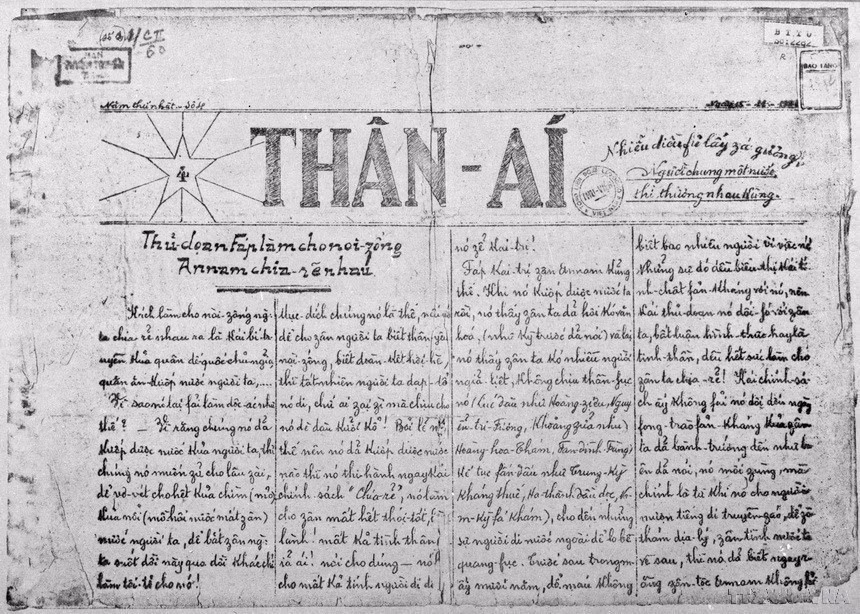 Năm thứ nhất - Số 4
4
THÂN-ÁI
Nhiễu điều fủ lấy zá gương,
Người chung một nước,
thì thương nhau kùng.
BTTU
BẢO TÀNG
Thủ-đoạn Fáp làm cho nòi-zống
Annam chia-rẽ nhau
Kách làm cho nòi-zống ng-
ta chia rẽ nhau ra là kái bí-t
ruyền kủa quân đế-quốc chủ-nghĩa
quân ăn-kướp nước người ta,...
Vì sao nó lại fải làm độc-ác như
thế? - Vì rằng chúng nó đã
kướp được nước kủa người ta, thì
chúng nó muốn zữ cho lâu zài,
để vơ-vét cho hết kủa chìm (mỏ)
kủa nổi (mồ hôi nước mắt zân)
nước người ta, để bắt zân ng-
ta suốt đời này qua đời khác chỉ
làm tôi-tớ cho nó!
mục-đích chúng nó là thế, nếu
để cho zân người ta biết thân-yêu
nòi-zống, biết đoàn-kết với
thì tất nhiên người ta đạp-tổ
nó đi, chứ ai zại zì mà chịu cho
nó đè đầu kưỡi kổ! Bởi lẽ
thế nên nó đã kướp được nước
nào thì nó thi-hành ngay kái
chính-sách "Chia-rẽ", nó làm
cho zân mất hết thói-tốt,
lành! mất kả tình thân
ái! nói cho đúng - nó
cho mất kả tính người đi để
nó zễ kai-trị!
Fáp kai-trị zân Annam kũng
thế. Khi nó kướp được nước ta
rồi, nó thấy zân ta đã hơi kó văn
hoá, (như kỳ trước đã nói) và lại
nó thấy zân ta kó nhiều người
ngĩa-tiết, không chịu thần-fục
nó (lúc đầu như Hoàng-ziệu, Nguy
ễn-tri-Fương, khoảng zữa như
Hoàng-hoa-Thám, Fan-đình-Fùng
kế tục fấn-đấu như Trung-kỳ
kháng thuế, Hà-thành đầu độc,
m-kỳ fá khám), cho đến những
sự người đi nước ngoài để lo bề
quang-fục. Trước sau trong m-
ấy mươi năm, đổ máu không
biết bao nhiêu người vì việc nó
Những sự đó đều biểu-thị kái tí-
nh-chất fản-kháng với nó, nên
kái thủ-đoạn nó đối-fó với zân
ta, bất luận hình-thức hay là
tinh-thần, đều hết sức làm cho
zân ta chia-rẽ! Kái chính-sá-
ch ấy không fải nó đợi đến ngày
fong-trào fản-kháng kủa zân
ta đã bành-trướng đến như
đã nói, nó mới zùng, mà
chính là từ khi nó cho người
mượn tiếng đi truyền-záo, để zò
thám địa-lý, zân tình nước ta
về sau, thì nó đã biết ngay r-
ằng zân-tộc Annam không fả